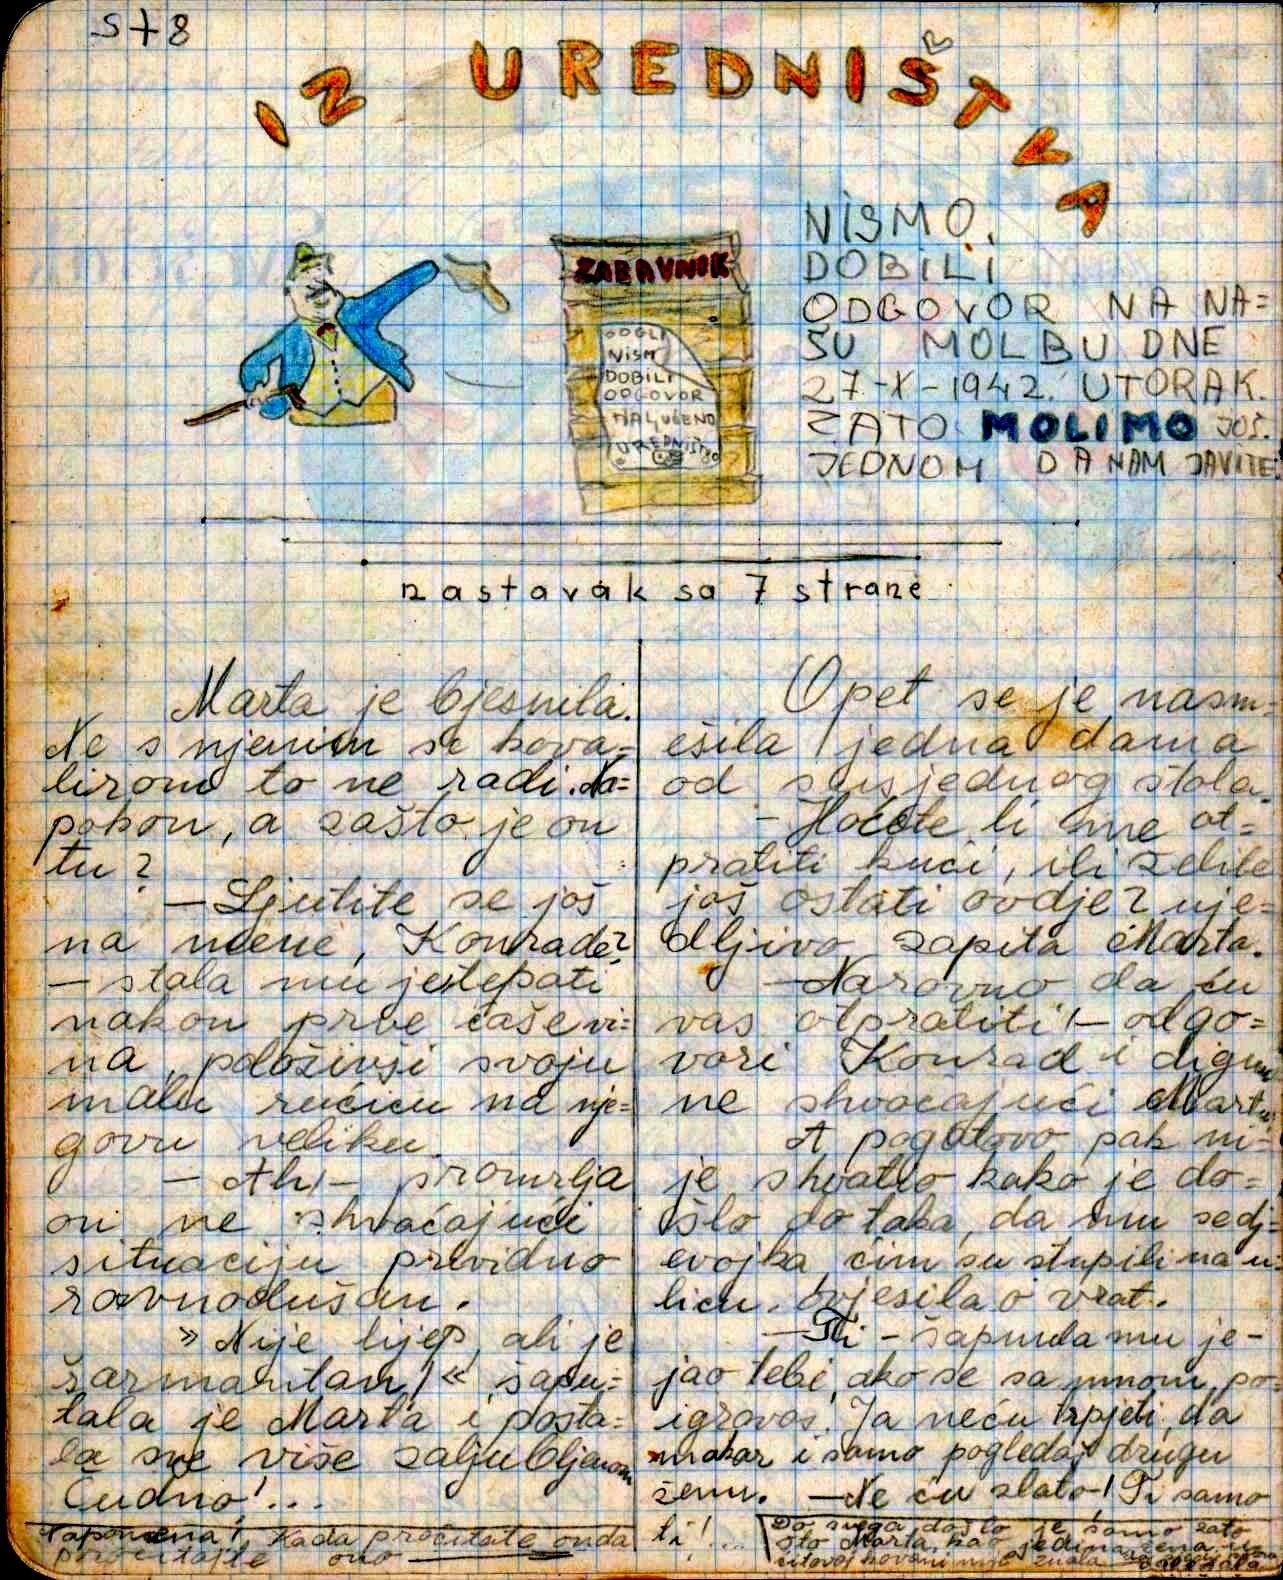 st 8
IZ UREDNIŠTVA
ZABAVNIK
NISM
DOBILI
ODGOVOR
UREDNIŠTVO
NISMO
DOBILI
ODGOVOR NA NA=
ŠU MOLBU DNE
27-X-1942. UTORAK.
ZATO MOLIMO JOŠ
JEDNOM DA NAM JAVITE
nastavak sa 7 strane
Marta je bjesnila.
Ne s njenim se kova=
lirom to ne radi. Na=
pokon, a zašto je on
tu?
— Ljutite se još
na mene, Konrade?
— stala mu je tepati
nakon prve čaše vi=
na, položivši svoju
malu ručicu na nje=
govu veliku.
— Ah! — promrlja
on ne shvaćajući
situaciju prividno
ravnodušan.
» Nije lijep, ali je
šarmantan!« šapu=
tala je Marta i posta=
la sve više zaljubljenom
Čudno!...
Napomena! Kada pročitate onda
pročitajte ono
Opet se je nasm=
ešila jedna dama
od susjednog stola.
— Hoćete li me ot=
pratiti kući, ili želite
još ostati ovdje? uje=
dljivo zapita Marta.
— Naravno da ću
vas otpratiti! — odgo=
vori Konrad i dignu
ne shvaćajući Martu
A pogotovo pak ni=
je shvatio kako je do=
šlo do toka, da mu se dj=
evojka čim su stupili na u=
licu, objesila o vrat.
— Ti — šapnula mu je —
jao tebi, ako se sa mnom po=
igravaš. Ja neću trpjeti da
makar i samo pogledaš drugu
ženu. — Ne ću zlato! Ti samo
ti! ...
Do svega došlo je samo zato
što Marta, kao jedina žena u
čitavoj kavani nije znala